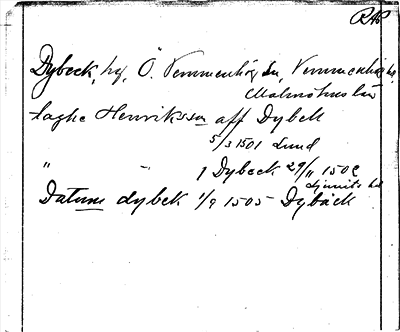 RAP
Dybeck, hg, Ö. Vemmenhög sn, Vemmenhögs hd,
Malmöhus län
Laghe Henrikssøn aff Dybek
5/3 1501 Lund
" " j Dybeck 29/11 1502
Ljunits hd
Datum dybek 1/9 1505 Dybäck